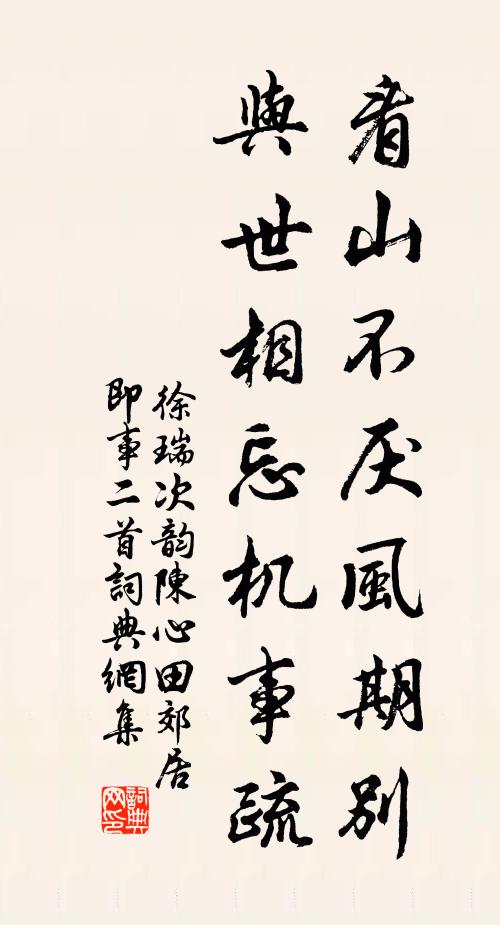 看山不厌風期别
與世相忘机事疏
徐瑞次韵陳心田郊居
即事二首詞典網集
詞典
网印